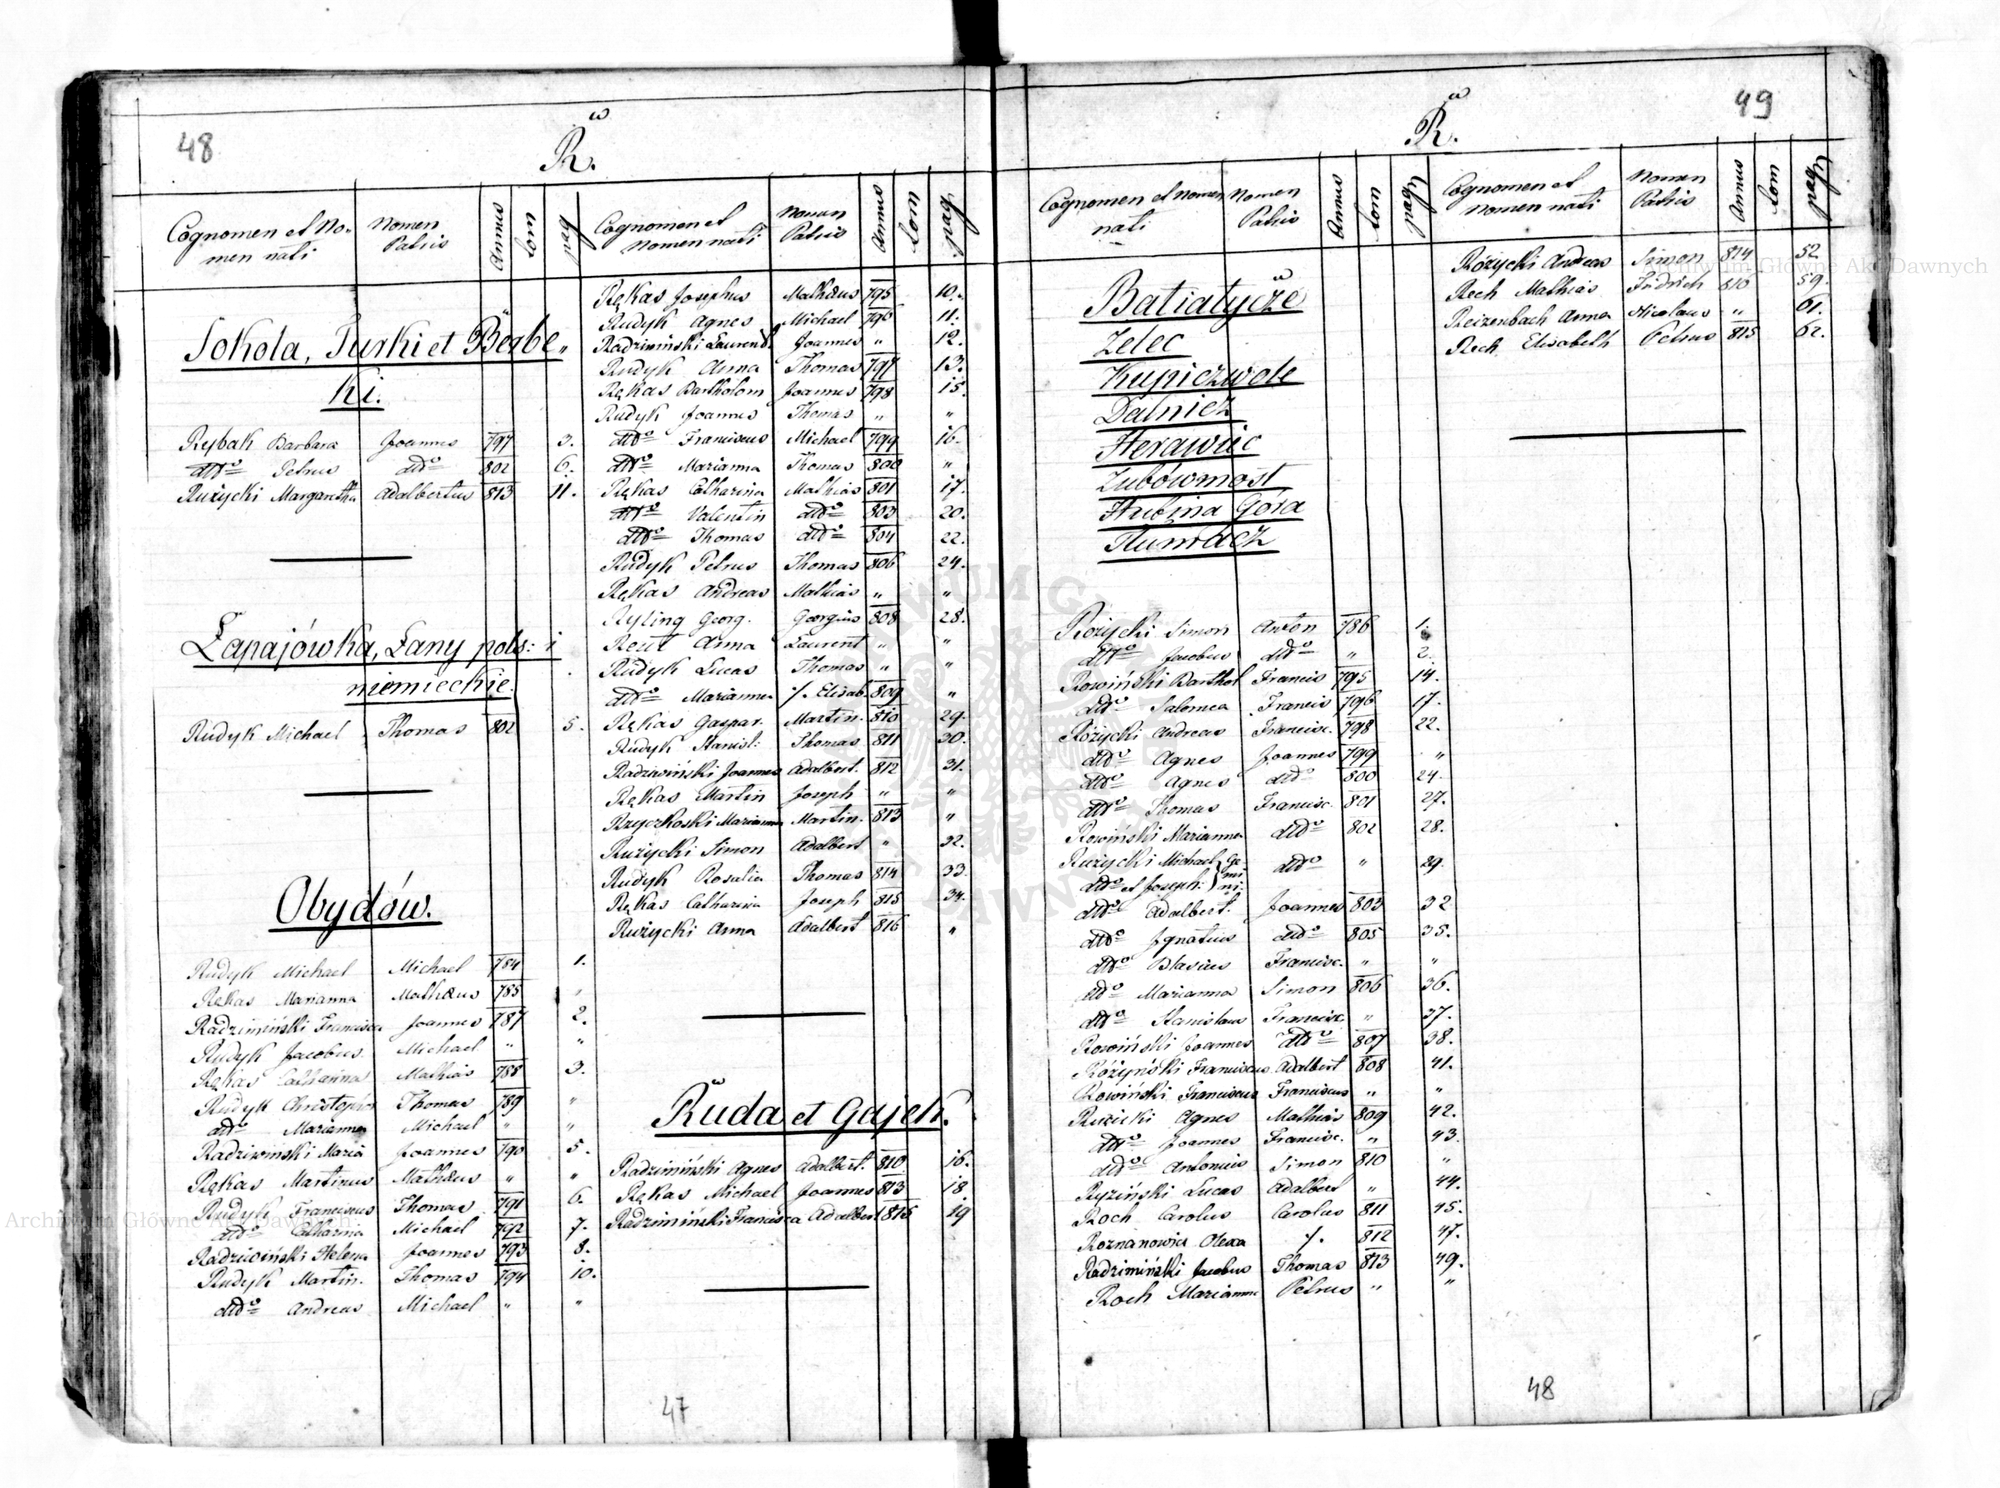 48
R.
Cognomen et No-
men nati
Nomen
Patris
Annus
Tom
pag
Sokola, Turki et Berbe„
ki.
Rybak Barbara Joannes 797 3.
dtto Petrus dtto 802 6.
Rużycki Margaretha Adalbertus 813 11.
Łapajówka, Łany pols: i
niemieckie.
Rudyk Michael Thomas 802 5.
Obydów.
Rudyk Michael Michael 784 1.
Rękas Marianna Mathæus 785 „
Radzimiński Francisca Joannes 787 2.
Rudyk Jacobus Michael „ „
Rękas Catharina Mathias 788 3.
Rudyk Christophor Thomas 789 „
dtto Marianna Michael „ „
Radziwinski Maria Joannes 790 5.
Rękas Martinus Mathæus „ „
Rudyk Franciscus Thomas 791 6.
dtto Catharina Michael 792 7.
Radziwiński Helena Joannes 793 8.
Rudyk Martin. Thomas 794 10.
dtto Andreas Michael „ „
Cognomen et
nomen nati
Nomen
Patris
Annus
Tom
pag.
Rękas Josephus Mathæus 795 10.
Rudyk Agnes Michael 796 11.
Radzimiński Laurent Joannes „ 12.
Rudyk Anna Thomas 797 13.
Rękas Bartholom Joannes 798 15.
Rudyk Joannes Thomas „ „
dtto Franciscus Michael 799 16.
dtto Marianna Thomas 800 „
Rękas Catharina Mathias 801 17.
dtto Valentin dtto 803 20.
dtto Thomas dtto 804 22.
Rudyk Petrus Thomas 806 24.
Rękas Andreas Mathias „ „
Ryling Georg. Georgius 808 28.
Anna Laurent „ „
Rudyk Lucas Thomas „ „
dtto Marianna /. Elisab. 809 „
Rękas Gaspar. Martin. 810 29.
Rudyk Stanisl: Thomas 811 30.
Radziwiński Joannes Adalbert. 812 31.
Rękas Martin Joseph „ „
Rzyczkoski Marianna Martin. 813 „
Rużycki Simon Adalbert „ 32.
Rudyk Rosalia Thomas 814 33.
Rękas Catharina Joseph 815 34.
Rużycki Anna Adalbert 816 „
Ruda et Gajek.
Radzimiński Agnes Adalbert. 810 16.
Rękas Michael Joannes 813 18
Radzimiński Francisca Adalbert 815 19
47
49
R.
Cognomen et Nomen
nati
Nomen
Patris
Annus
Tom
pag.
Batiatycze
Zelec
Kupiczwole
Dalnicz
Herawiec
Zubowmost
Hubina Góra
Tłumacz
Rożycki Simon Anton 786 1.
dtto Jacobus dtto „ 2.
Rowiński Barthol Francis 795 14.
dtto Salomea Francis 796 17.
Różycki Andreas Francisc. 798 22.
dtto Agnes Joannes 799 „
dtto Agnes dtto 800 24.
dtto Thomas Francisc. 801 27.
Rowiński Marianna dtto 802 28.
Rużycki Michael } Ge- dtto „ 29.
dtto et Joseph: } mi ni.
dtto Adalbert. Joannes 803 32
dtto Ignatius dtto 805 35.
dtto Blasius Francisc. „ „
dtto Marianna Simon 806 36.
dtto Stanislaus Francisc „ 37.
Rowiński Joannes dtto 807 38.
Różyński Franciscus Adalbert 808 41.
Rowiński Franciscus Franciscus „ „
Rużicki Agnes Mathias 809 42.
dtto Joannes Francisc. „ 43.
dtto Antonius Simon 810 „
Ryziński Lucas Adalbert „ 44.
Roch Carolus Carolus 811 45.
Roznanowicz Olexa /. 812 47.
Radzimiński Jacobus Thomas 813 49.
Roch Marianna Petrus „ „
Cognomen et
nomen nati
Nomen
Patris
Annus
Tom
pag.
Różycki Andreas Simon 814 52
Rech Mathias Fridrich 815 59.
Reizenbach Anna Nicolaus „ 61.
Rech Elisabeth Petrus 815 62.
48
Archiwum Główne Akt Dawnych
Archiwum Główne Akt Dawnych